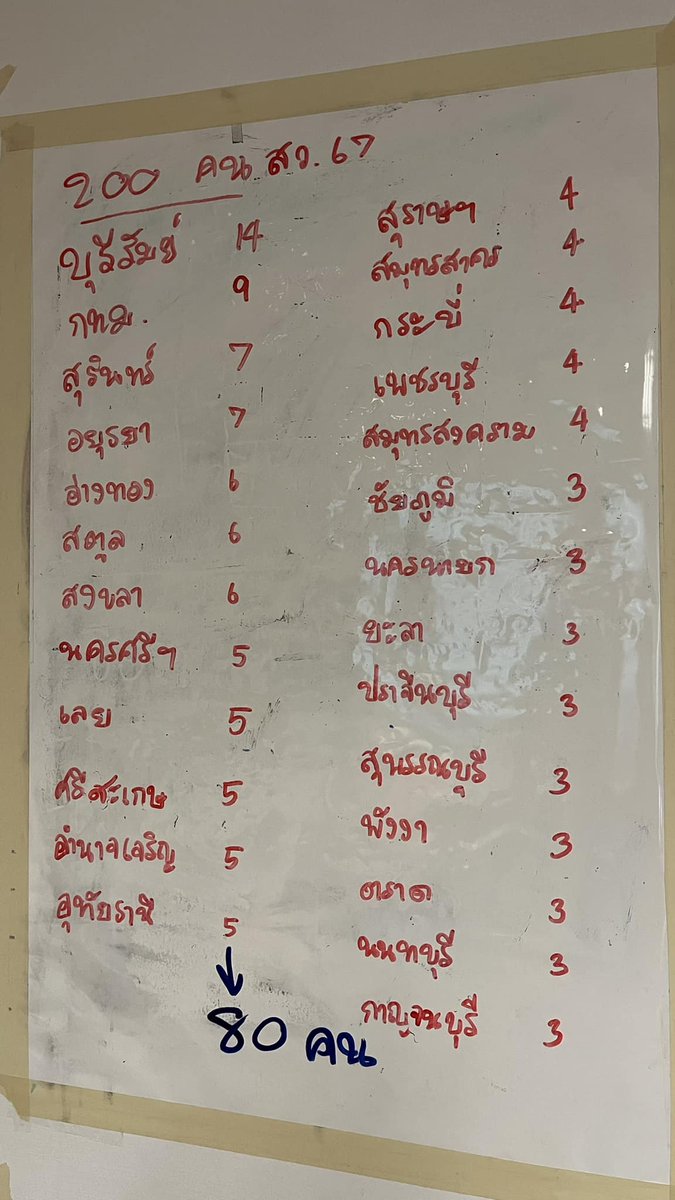 200 คน สว. 67
บุรีรัมย์ 14
กทม. 9
สุรินทร์ 7
อยุธยา 7
อ่างทอง 6
สตูล 6
สงขลา 6
นครศรีฯ 5
เลย 5
ศรีสะเกษ 5
อำนาจเจริญ 5
อุทัยธานี 5
80 คน
สุราษฯ 4
สมุทรสาคร 4
กระบี่ 4
เพชรบุรี 4
สมุทรสงคราม 4
ชัยภูมิ 3
นครนายก 3
ยะลา 3
ปราจีนบุรี 3
สุพรรณบุรี 3
พังงา 3
ตราด 3
นนทบุรี 3
กาญจนบุรี 3